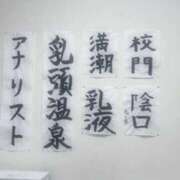 校門
陰口
満潮
乳液
乳頭温泉
アナリスト